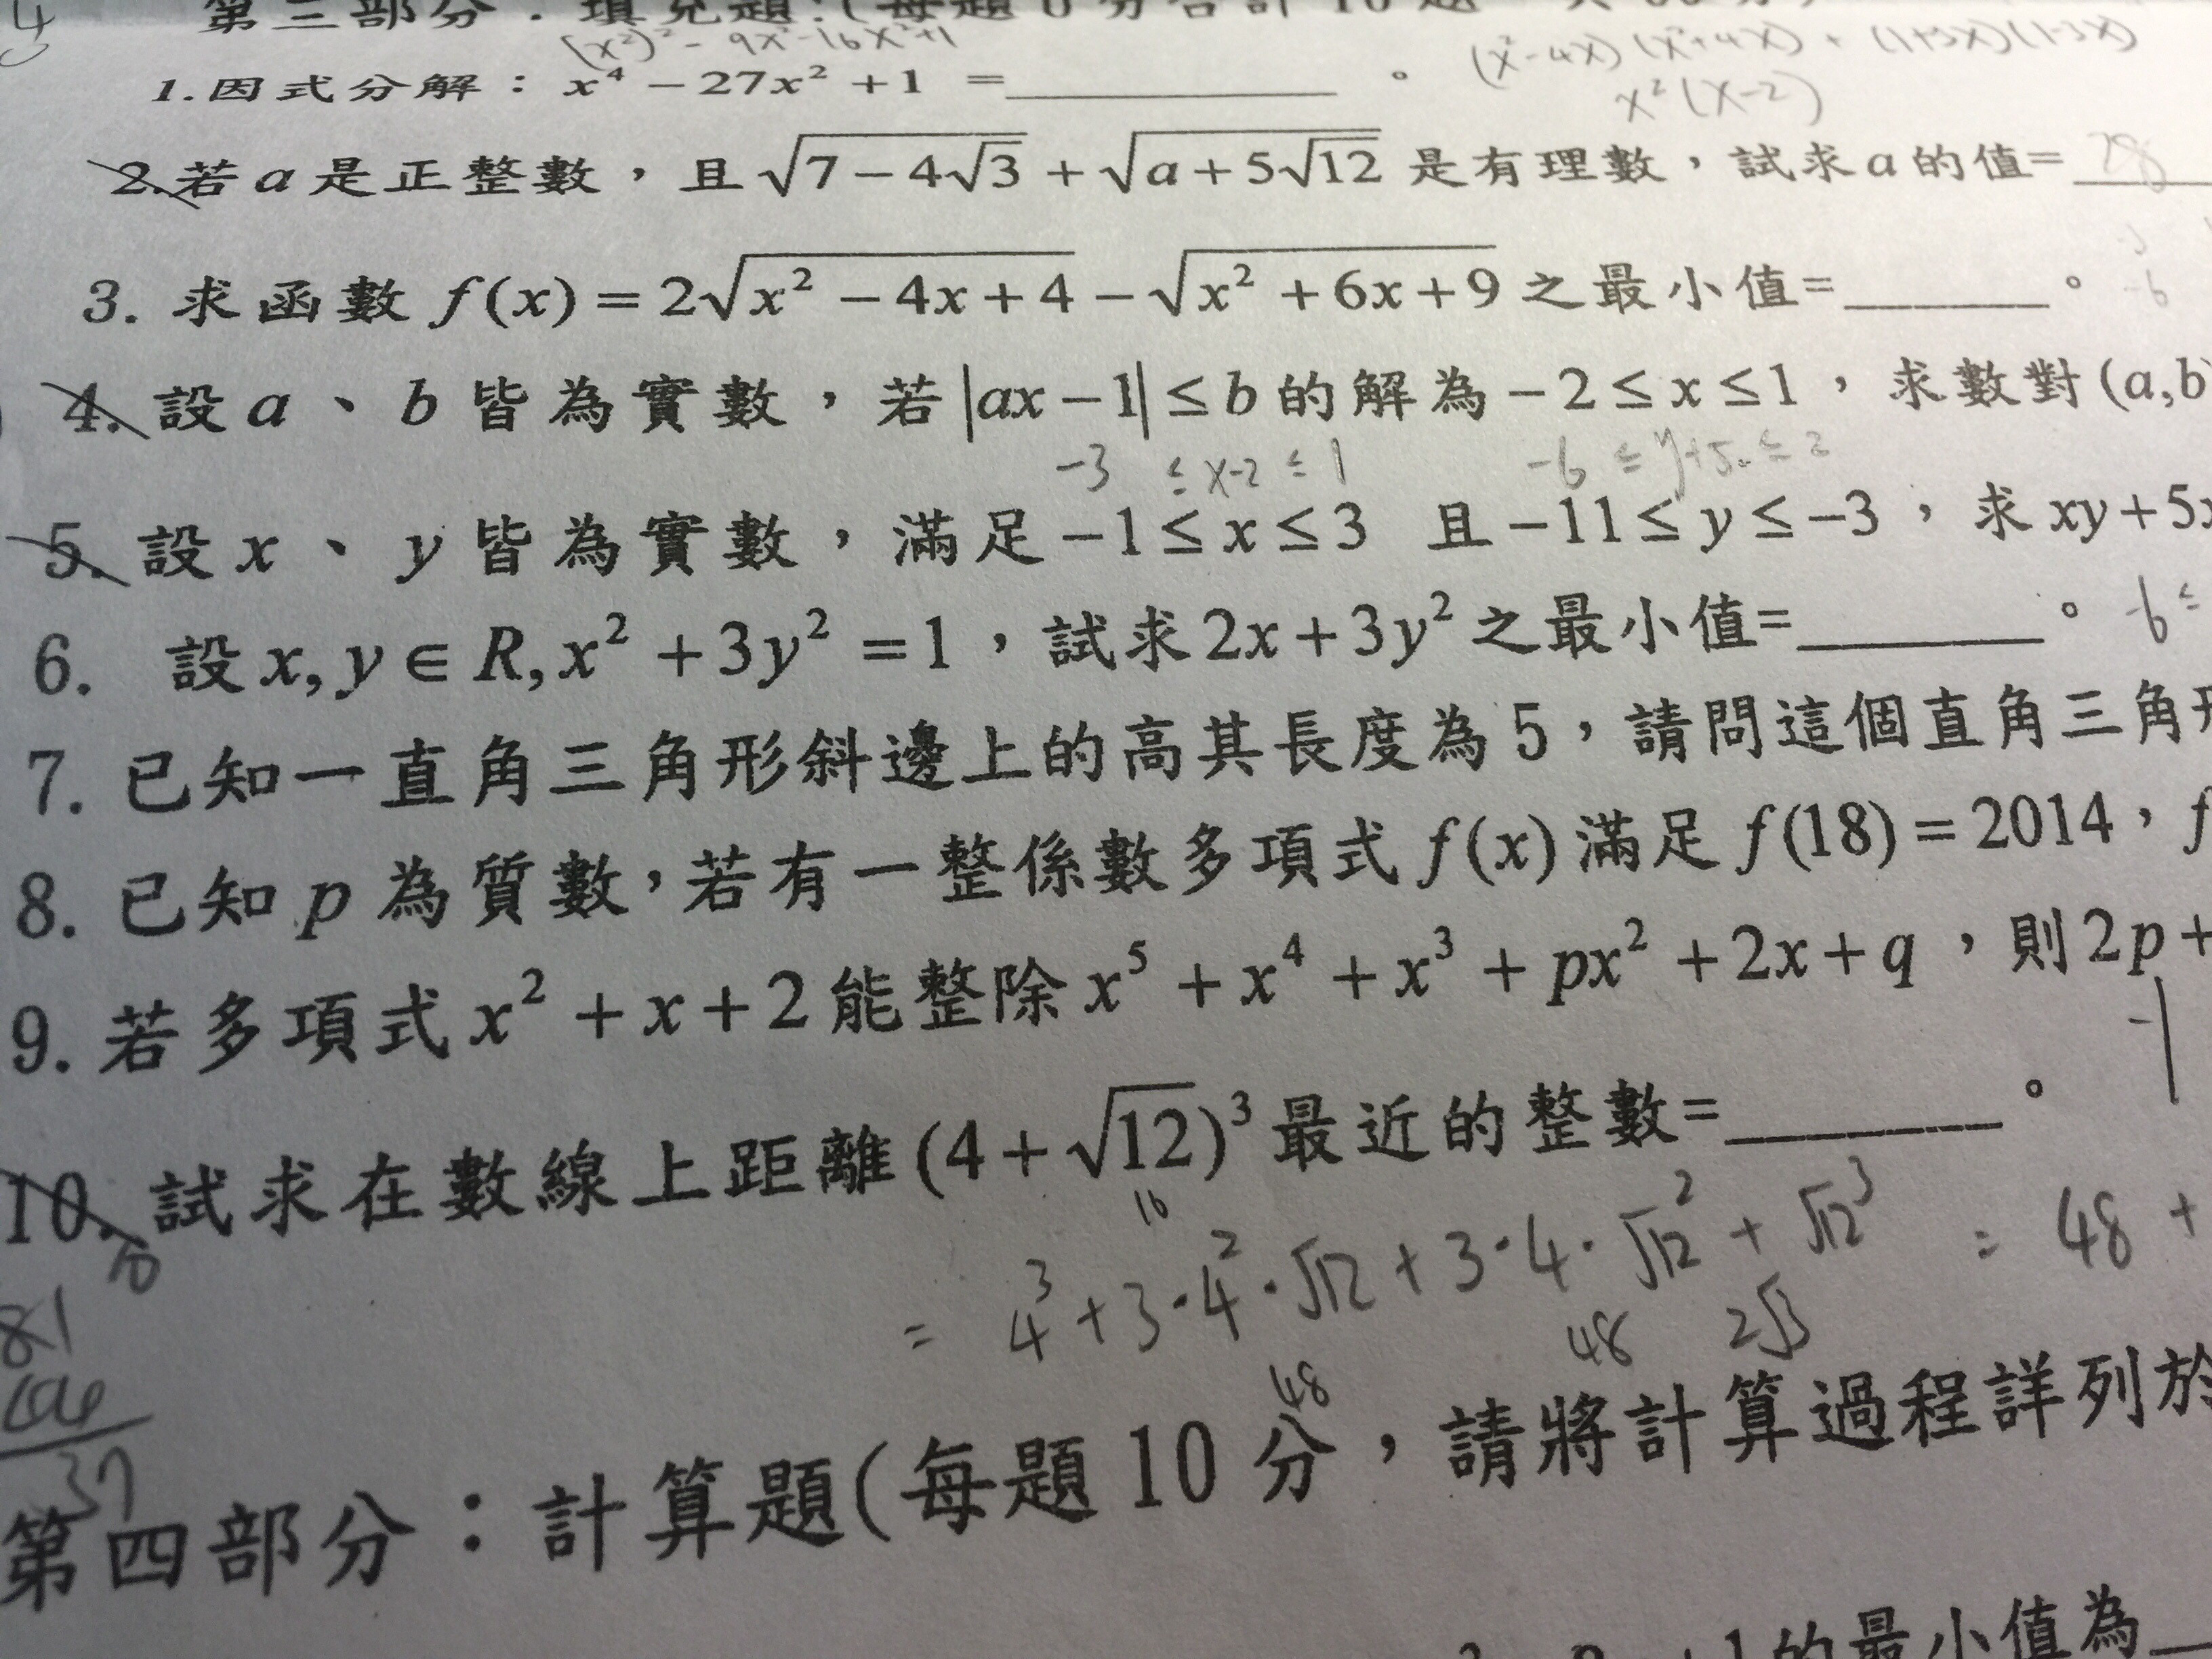 4
第三部分：填充題
(x²)² - 9x² - 16x² + 1
(x²-4x)(x²+4x) + (1+3x)(1-3x)
1.因式分解：x⁴ − 27x² + 1 =________。
x²(x-2)
2.若 a 是正整數，且 √(7 − 4√3) + √(a + 5√12) 是有理數，試求 a 的值= 28
3. 求函數 f(x) = 2√(x² − 4x + 4) − √(x² + 6x + 9) 之最小值=________。
-6
4. 設 a、b 皆為實數，若 |ax − 1| ≤ b 的解為 − 2 ≤ x ≤ 1，求數對 (a,b)
-3 ≤ x-2 ≤ 1
-6 ≤ y+5 ≤ 2
5. 設 x、y 皆為實數，滿足 −1 ≤ x ≤ 3 且 −11 ≤ y ≤ −3，求 xy + 5x
6. 設 x, y ∈ R, x² + 3y² = 1，試求 2x + 3y² 之最小值=________。
-6 ≤
7. 已知一直角三角形斜邊上的高其長度為 5，請問這個直角三角形
8. 已知 p 為質數，若有一整係數多項式 f(x) 滿足 f(18) = 2014，f
9. 若多項式 x² + x + 2 能整除 x⁵ + x⁴ + x³ + px² + 2x + q，則 2p +
10. 試求在數線上距離 (4 + √12)³ 最近的整數=________。
= 4³ + 3·4²·√12 + 3·4·√12² + √12³ = 48 +
48
2√3
48
81
37
第四部分：計算題(每題 10 分，請將計算過程詳列於
的最小值為